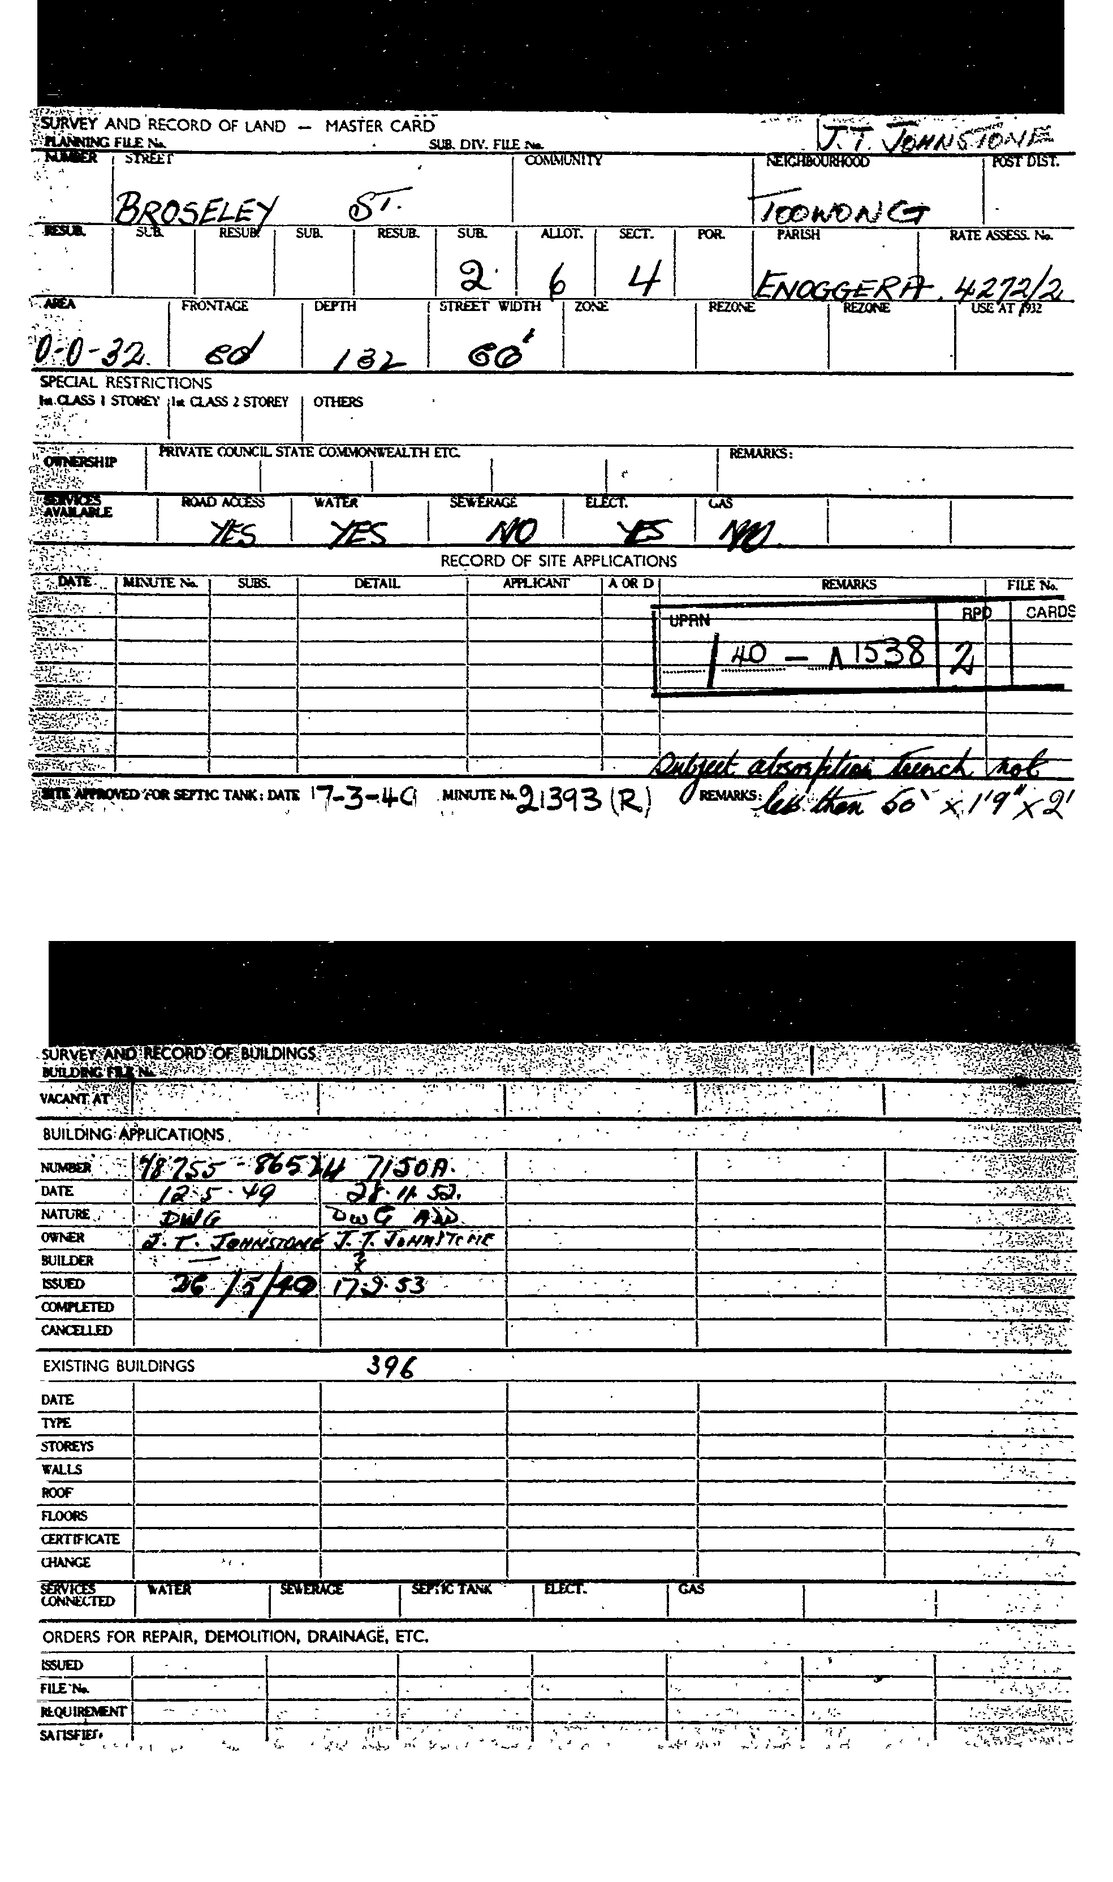 SURVEY AND RECORD OF LAND — MASTER CARD
J.T. JOHNSTONE
PLANNING FILE No. SUB. DIV. FILE No.
NUMBER STREET COMMUNITY NEIGHBOURHOOD POST DIST.
BROSELEY ST. TOOWONG
RESUB. SUB. RESUB. SUB. RESUB. SUB. ALLOT. SECT. POR. PARISH RATE ASSESS. No.
2 6 4 ENOGGERA. 4272/2
AREA FRONTAGE DEPTH STREET WIDTH ZONE REZONE REZONE USE AT 1932
0-0-32. 132 66'
SPECIAL RESTRICTIONS
1st. CLASS 1 STOREY 1st CLASS 2 STOREY OTHERS
OWNERSHIP PRIVATE COUNCIL STATE COMMONWEALTH ETC. REMARKS:
SERVICES AVAILABLE ROAD ACCESS WATER SEWERAGE ELECT. GAS
YES YES NO YES NO
RECORD OF SITE APPLICATIONS
DATE MINUTE No. SUBS. DETAIL APPLICANT A OR D REMARKS FILE No.
UPRN RPD CARDS
40 — A1538 2
Subject absorption trench not
SITE APPROVED FOR SEPTIC TANK: DATE 17-3-49 MINUTE No. 21393 (R) REMARKS: less than 50' x 1'9" x 2'
SURVEY AND RECORD OF BUILDINGS
BUILDING FILE No.
VACANT AT
BUILDING APPLICATIONS
NUMBER 48755 - 7150A.
DATE 12.5.49 28.11.52.
NATURE DWG DWG ADD.
OWNER J. T. JOHNSTONE J. T. JOHNSTONE
BUILDER — ?
ISSUED 26/5/49 17.2.53
COMPLETED
CANCELLED
EXISTING BUILDINGS 396
DATE
TYPE
STOREYS
WALLS
ROOF
FLOORS
CERTIFICATE
CHANGE
SERVICES CONNECTED WATER SEWERAGE SEPTIC TANK ELECT. GAS
ORDERS FOR REPAIR, DEMOLITION, DRAINAGE, ETC.
ISSUED
FILE No.
REQUIREMENT
SATISFIED